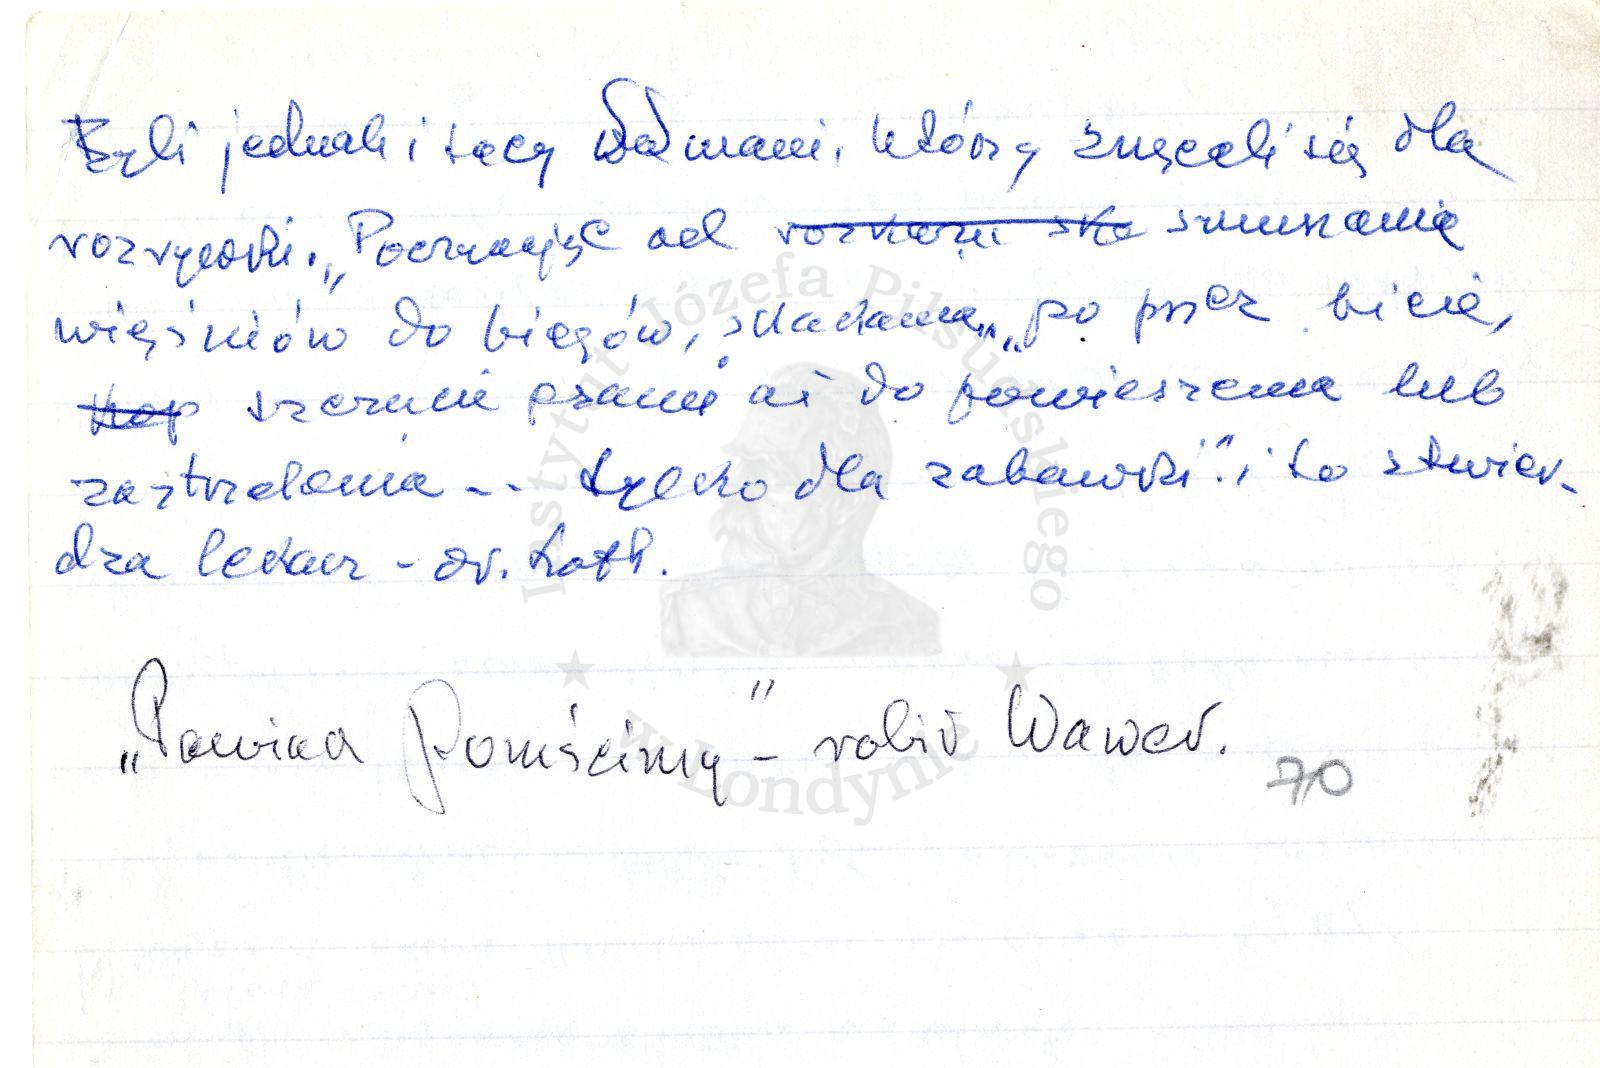 Byli jednak i tacy Wachmani, którzy znęcali się dla
rozrywki. „Poczynając od rozkazu ska zmuszania
więźniów do biegów, skakania, „po przez bicie,
kop szczucie psami aż do powieszenia lub
zastrzelenia -- tylko dla zabawki". i to stwier-
dza lekarz - dr. Loth.
„Pawiak pomścimy" - robił Wawer.
70
Instytut Józefa Piłsudskiego
w Londynie